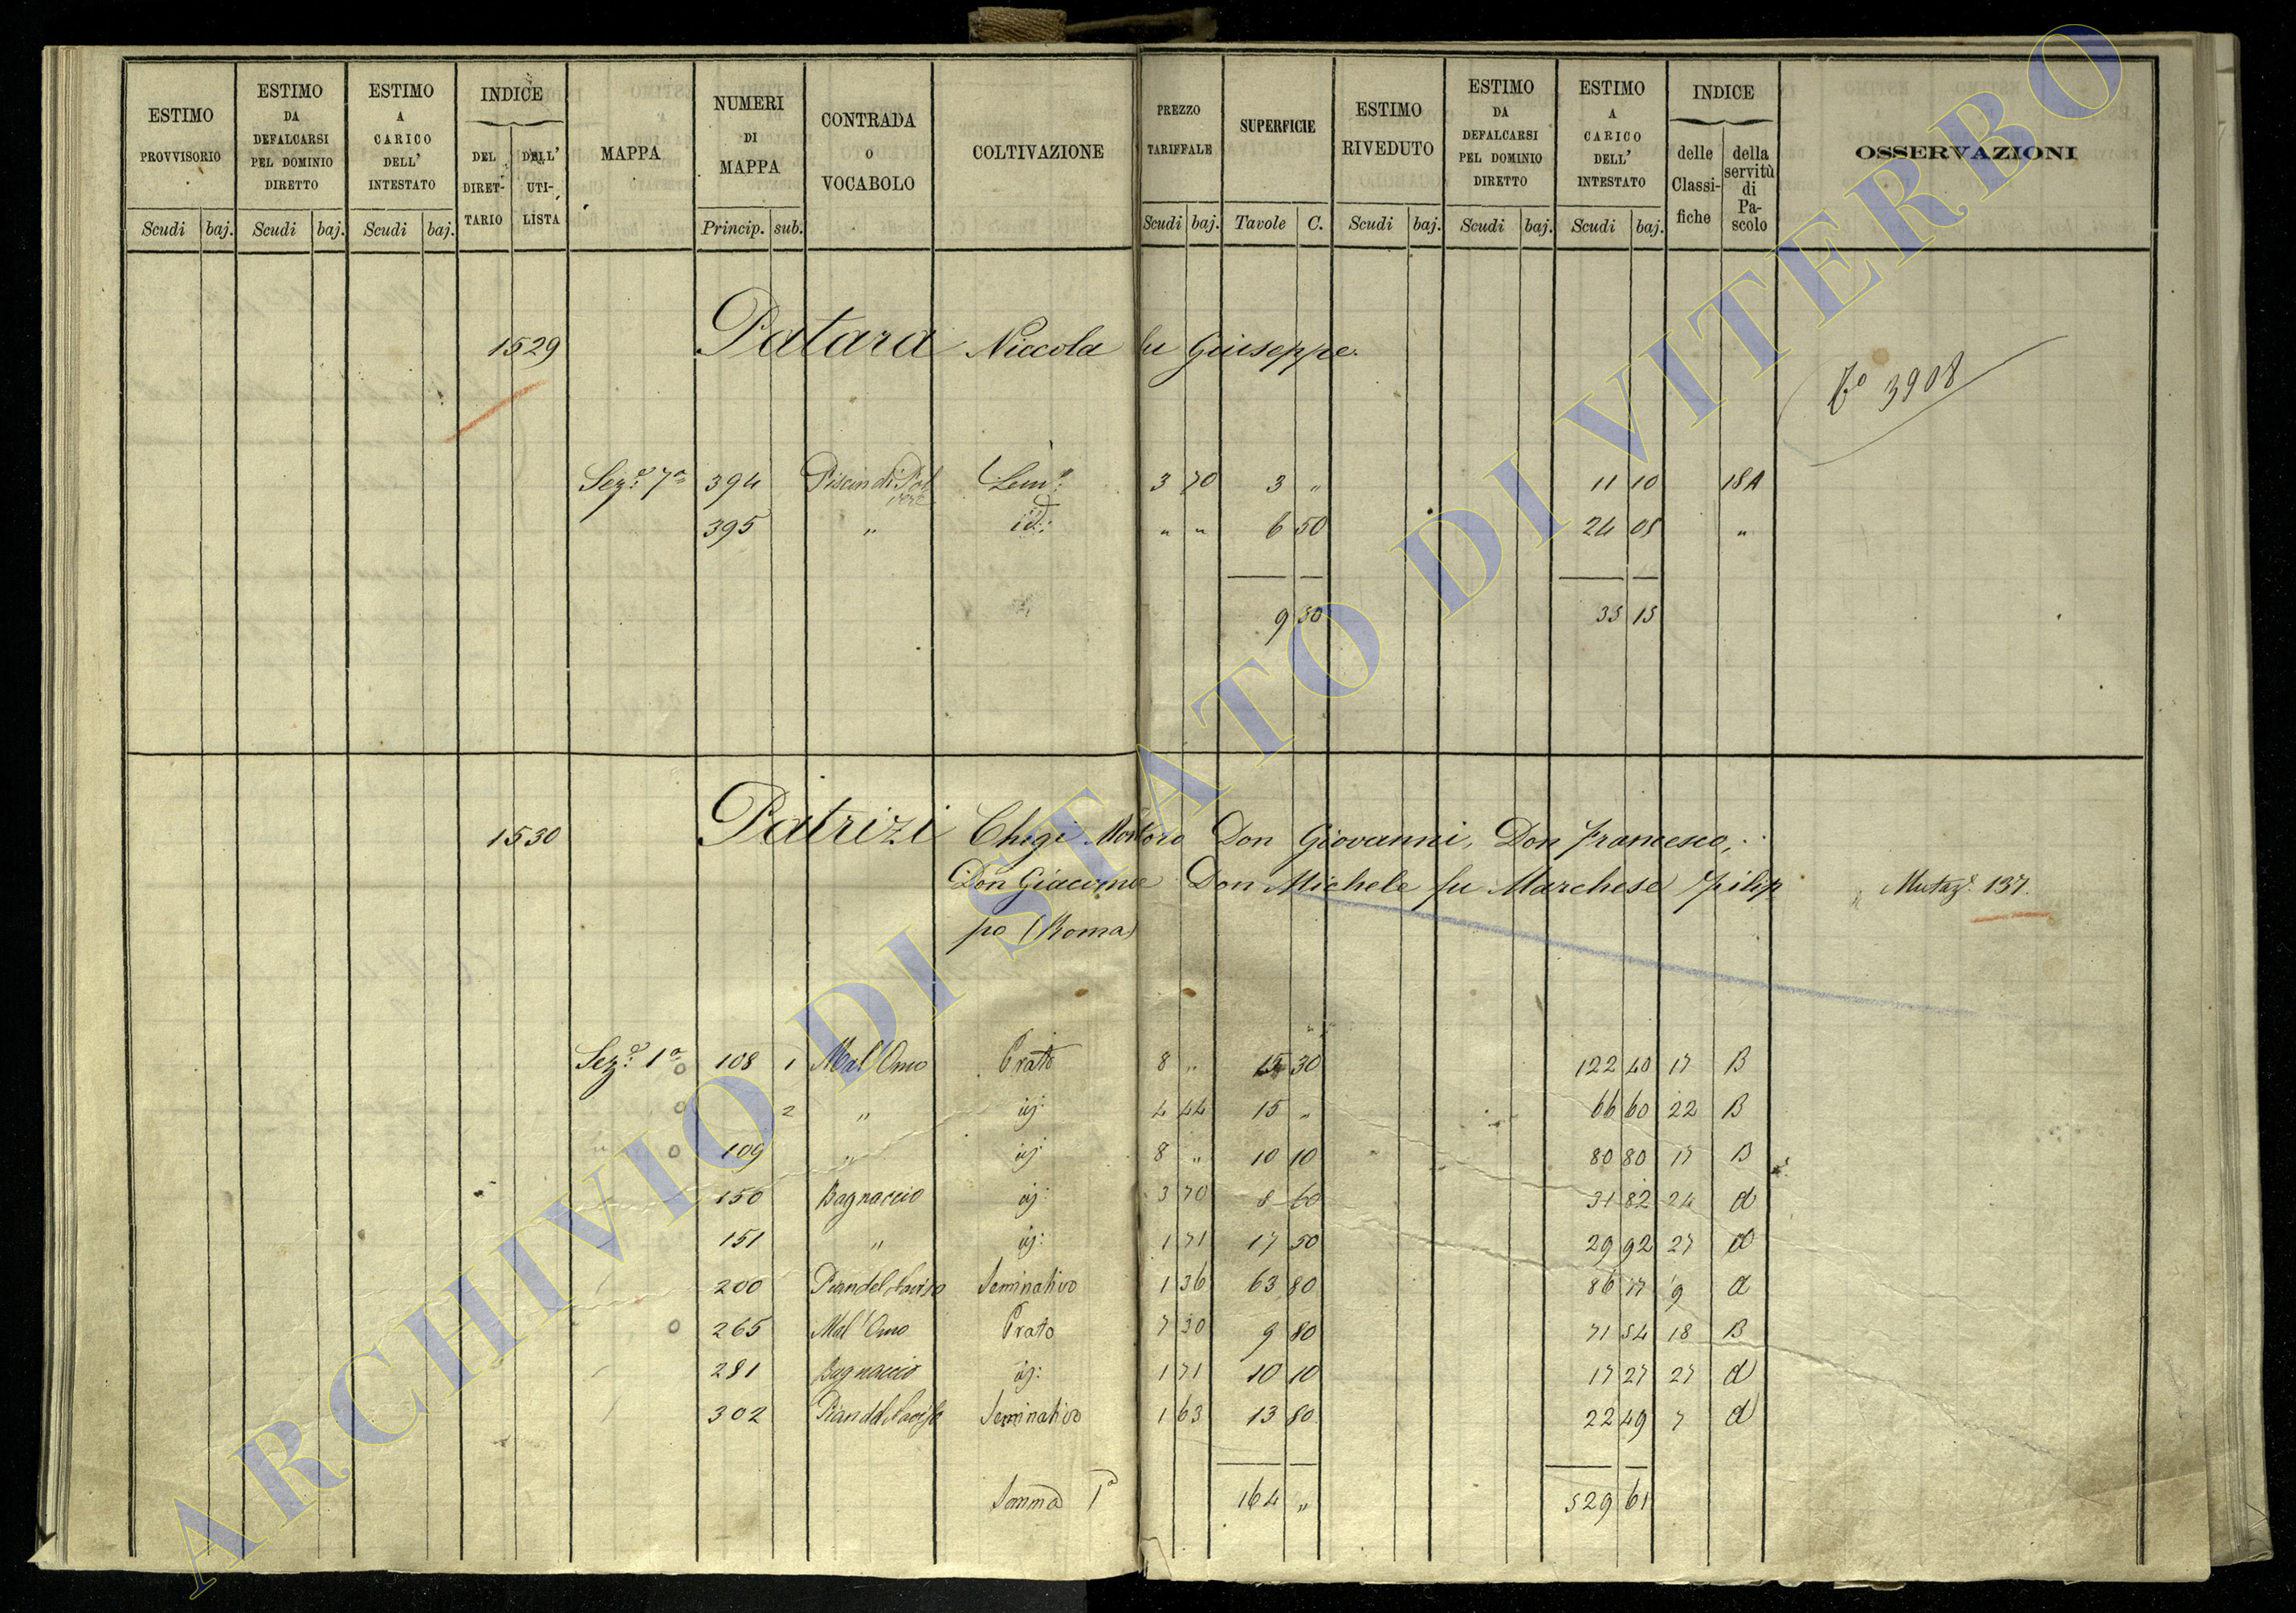 ESTIMO PROVVISORIO | ESTIMO DA DEFALCARSI PEL DOMINIO DIRETTO | ESTIMO A CARICO DELL' INTESTATO | INDICE DEL DIRETTARIO | DELL' UTILISTA | MAPPA | NUMERI DI MAPPA | CONTRADA O VOCABOLO | COLTIVAZIONE | PREZZO TARIFFALE | SUPERFICIE | ESTIMO RIVEDUTO | ESTIMO DA DEFALCARSI PEL DOMINIO DIRETTO | ESTIMO A CARICO DELL' INTESTATO | INDICE delle Classifiche | della servitù di Pascolo | OSSERVAZIONI
Scudi baj. Scudi baj. Scudi baj. Princip. sub. Scudi baj. Tavole C. Scudi baj. Scudi baj. Scudi baj.
1529 Patara Niccola fu Giuseppe.
3908
Sez.e 7a 394 Piscin di Pol vere Sem.o 3 70 3 " 11 10 18 A
395 " id: " " 6 50 24 05 "
9 50 35 15
1530 Patrizi Chigi Montoro Don Giovanni, Don Francesco,
Don Giacomo Don Michele fu Marchese Filip
po (Roma)
Mutaz.e 137.
Sez.e 1a 108 1 Mal'Omo Prato 8 " 15 30 122 40 17 B
2 " id: 4 44 15 " 66 60 22 B
109 " id: 8 " 10 10 80 80 17 B
150 Bagnaccio id: 3 70 8 60 31 82 24 A
151 " id: 1 71 17 50 29 92 27 A
200 Pian del Seminativo 1 36 63 80 86 77 9 A
265 Mal'Omo Prato 7 30 9 80 71 54 18 B
281 Bagnaccio id: 1 71 10 10 17 27 27 A
302 Pian del Seminativo 1 63 13 80 22 49 7 A
Somma 1a 164 " 529 61
ARCHIVIO DI STATO DI VITERBO